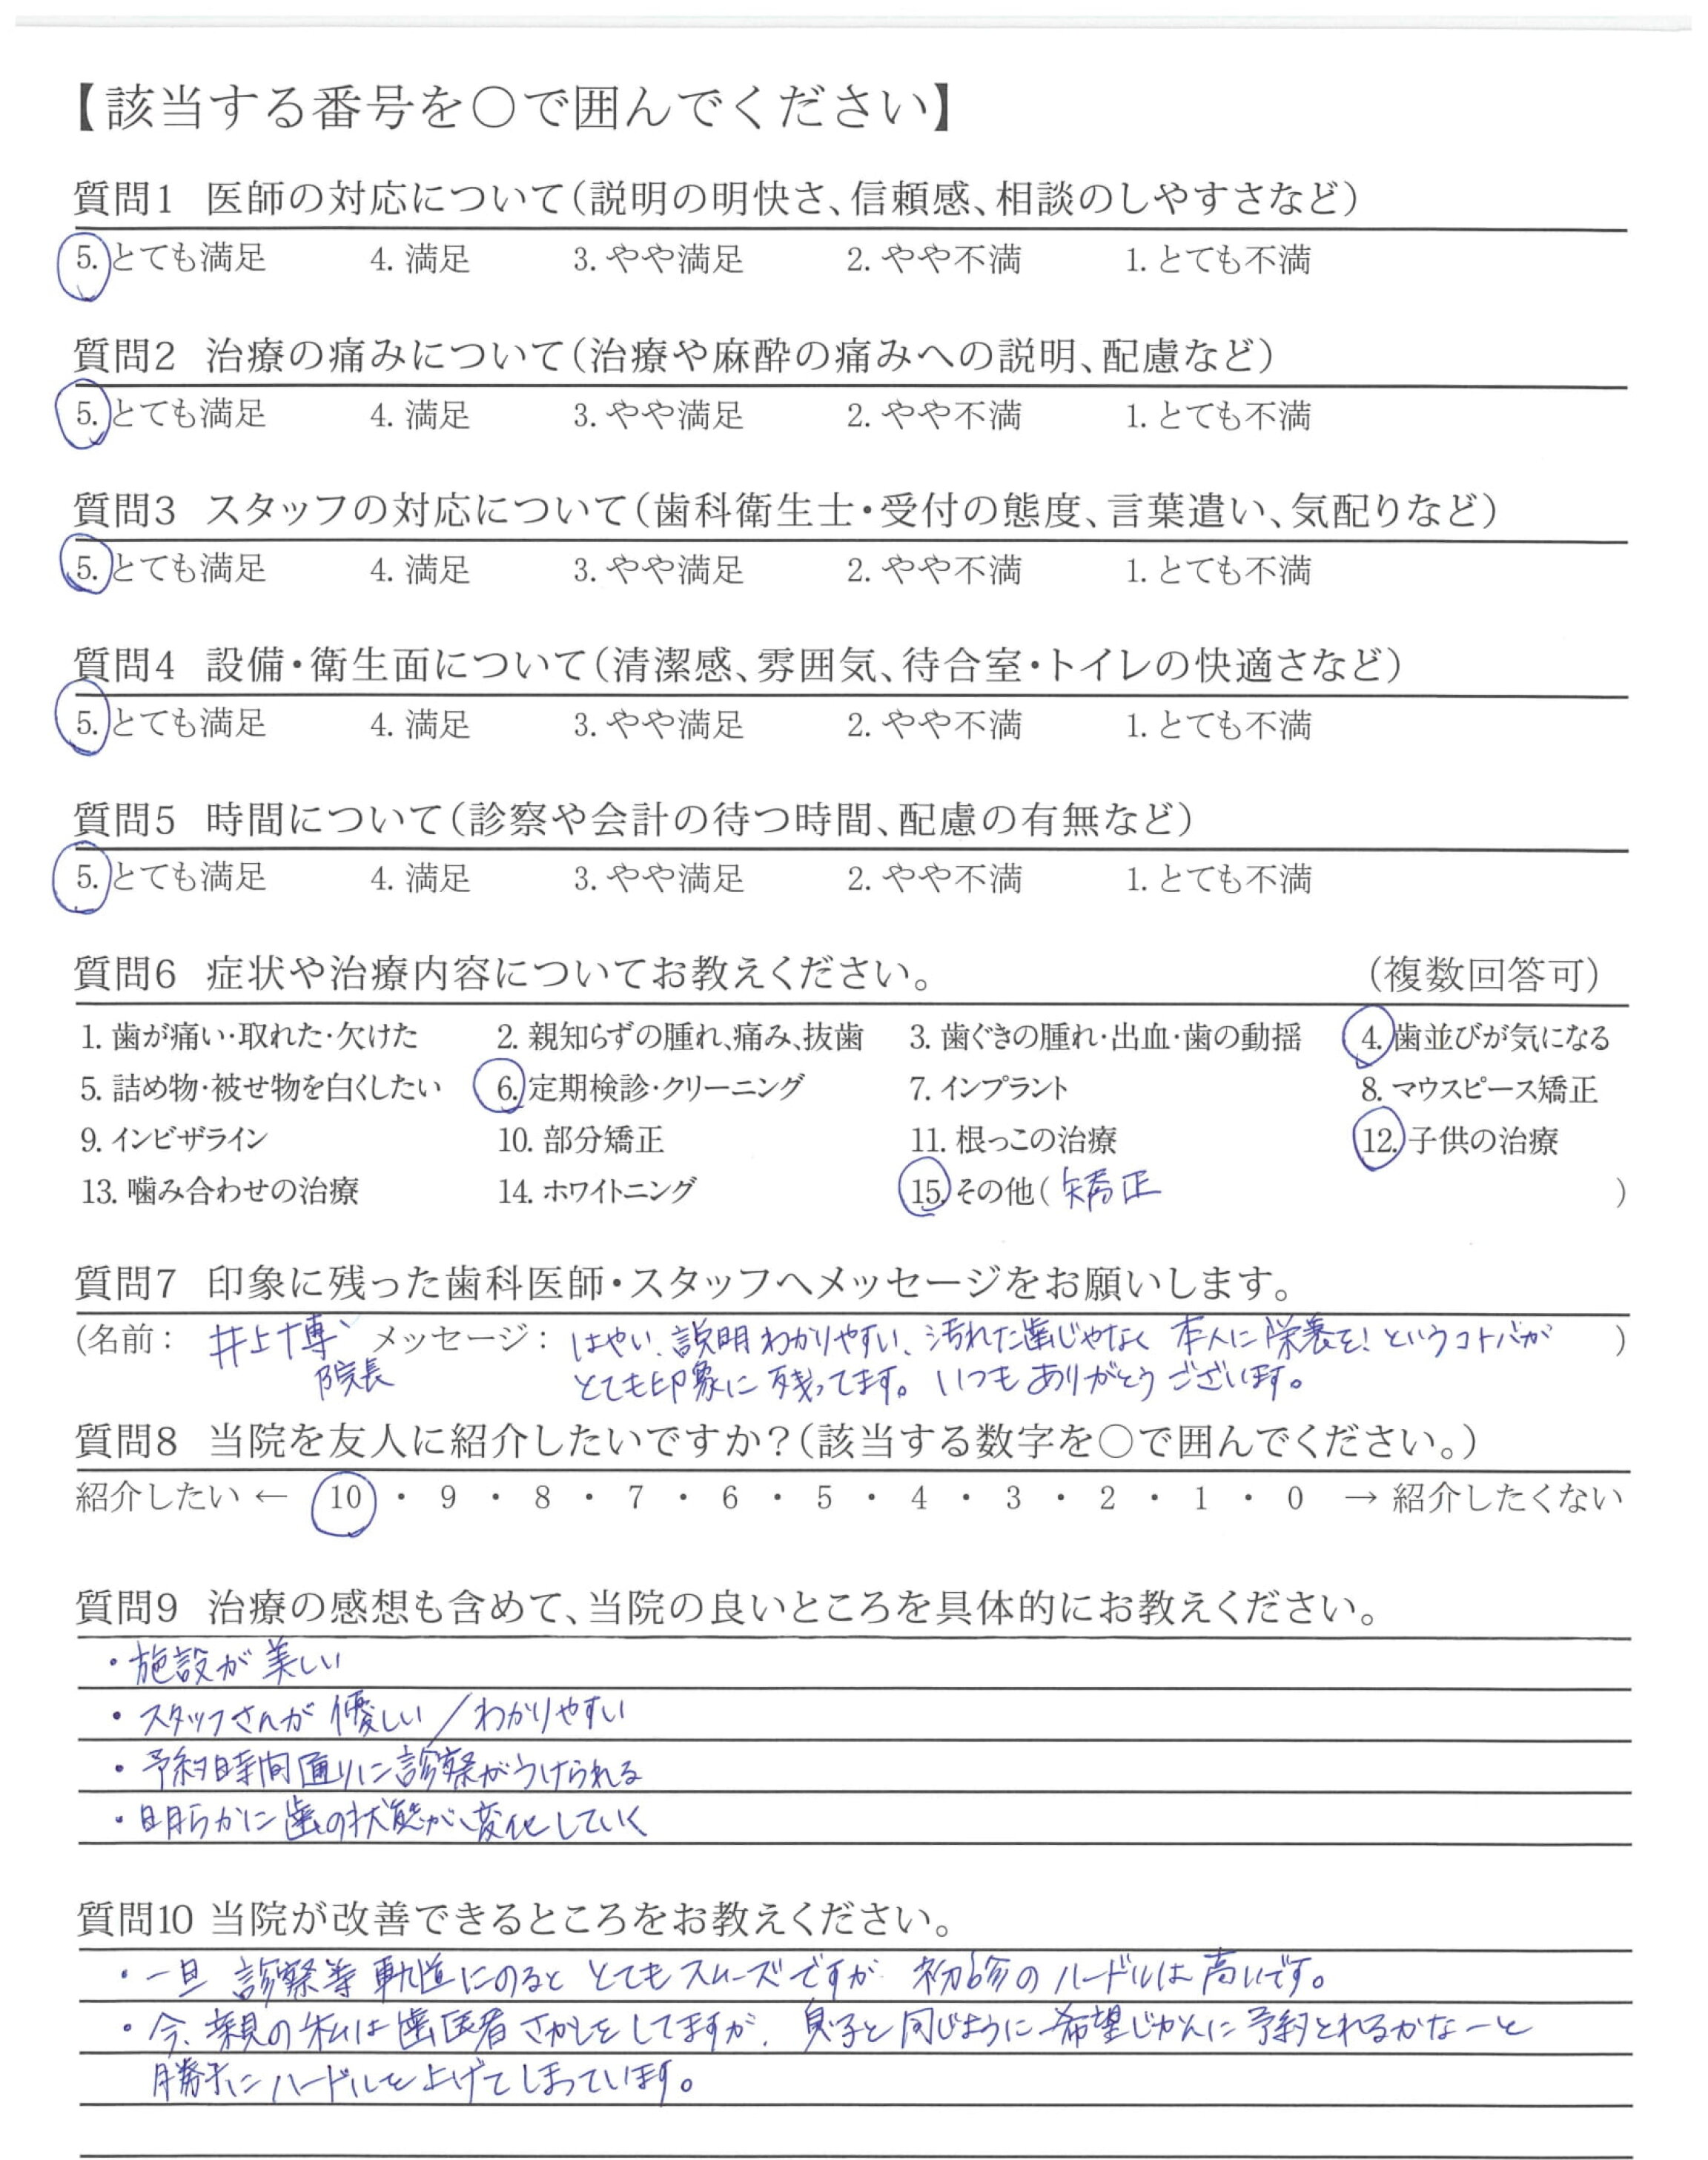 【該当する番号を○で囲んでください】
質問1 医師の対応について（説明の明快さ、信頼感、相談のしやすさなど）
5. とても満足 4. 満足 3. やや満足 2. やや不満 1. とても不満
質問2 治療の痛みについて（治療や麻酔の痛みへの説明、配慮など）
5. とても満足 4. 満足 3. やや満足 2. やや不満 1. とても不満
質問3 スタッフの対応について（歯科衛生士・受付の態度、言葉遣い、気配りなど）
5. とても満足 4. 満足 3. やや満足 2. やや不満 1. とても不満
質問4 設備・衛生面について（清潔感、雰囲気、待合室・トイレの快適さなど）
5. とても満足 4. 満足 3. やや満足 2. やや不満 1. とても不満
質問5 時間について（診察や会計の待つ時間、配慮の有無など）
5. とても満足 4. 満足 3. やや満足 2. やや不満 1. とても不満
質問6 症状や治療内容についてお教えください。 （複数回答可）
1. 歯が痛い・取れた・欠けた 2. 親知らずの腫れ、痛み、抜歯 3. 歯ぐきの腫れ・出血・歯の動揺 4. 歯並びが気になる
5. 詰め物・被せ物を白くしたい 6. 定期検診・クリーニング 7. インプラント 8. マウスピース矯正
9. インビザライン 10. 部分矯正 11. 根っこの治療 12. 子供の治療
13. 噛み合わせの治療 14. ホワイトニング 15. その他（ 矯正 ）
質問7 印象に残った歯科医師・スタッフへメッセージをお願いします。
（名前： 井上博 メッセージ： はやい、説明わかりやすい、汚れた歯じゃなく 本人に栄養を！というコトバが ）
院長 とても印象に残ってます。いつもありがとうございます。
質問8 当院を友人に紹介したいですか？（該当する数字を○で囲んでください。）
紹介したい ← 10 ・ 9 ・ 8 ・ 7 ・ 6 ・ 5 ・ 4 ・ 3 ・ 2 ・ 1 ・ 0 → 紹介したくない
質問9 治療の感想も含めて、当院の良いところを具体的にお教えください。
・施設が美しい
・スタッフさんが優しい／わかりやすい
・予約時間通りに診察がうけられる
・明らかに歯の状態が変化していく
質問10 当院が改善できるところをお教えください。
・一旦 診察等軌道にのると とてもスムーズですが 初診のハードルは高いです。
・今、親の私は歯医者さがしをしてますが、息子と同じように希望じかんに予約とれるかなーと
勝手にハードルを上げてしまっています。